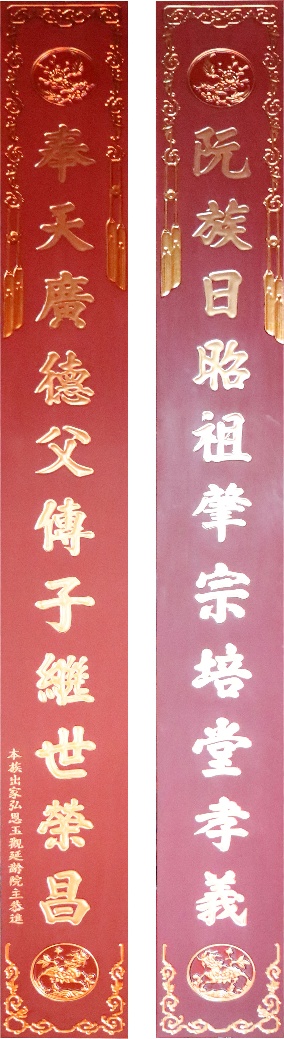 阮族日昭祖肇宗培堂孝義
奉天廣德父傳子繼世榮昌
本族出家弘恩玉觀延齡院主恭進